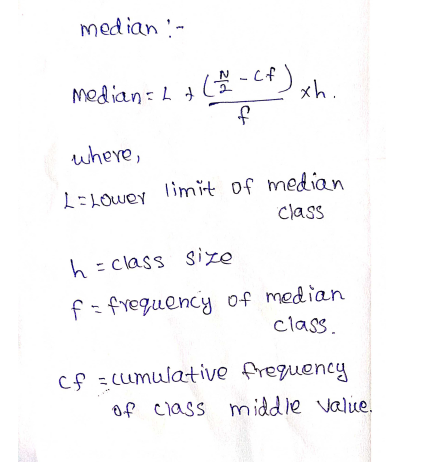 median :-
Median = L + (N/2 - cf)/f × h.
where,
L = Lower limit of median
class
h = class size
f = frequency of median
class.
cf = cumulative frequency
of class middle value.